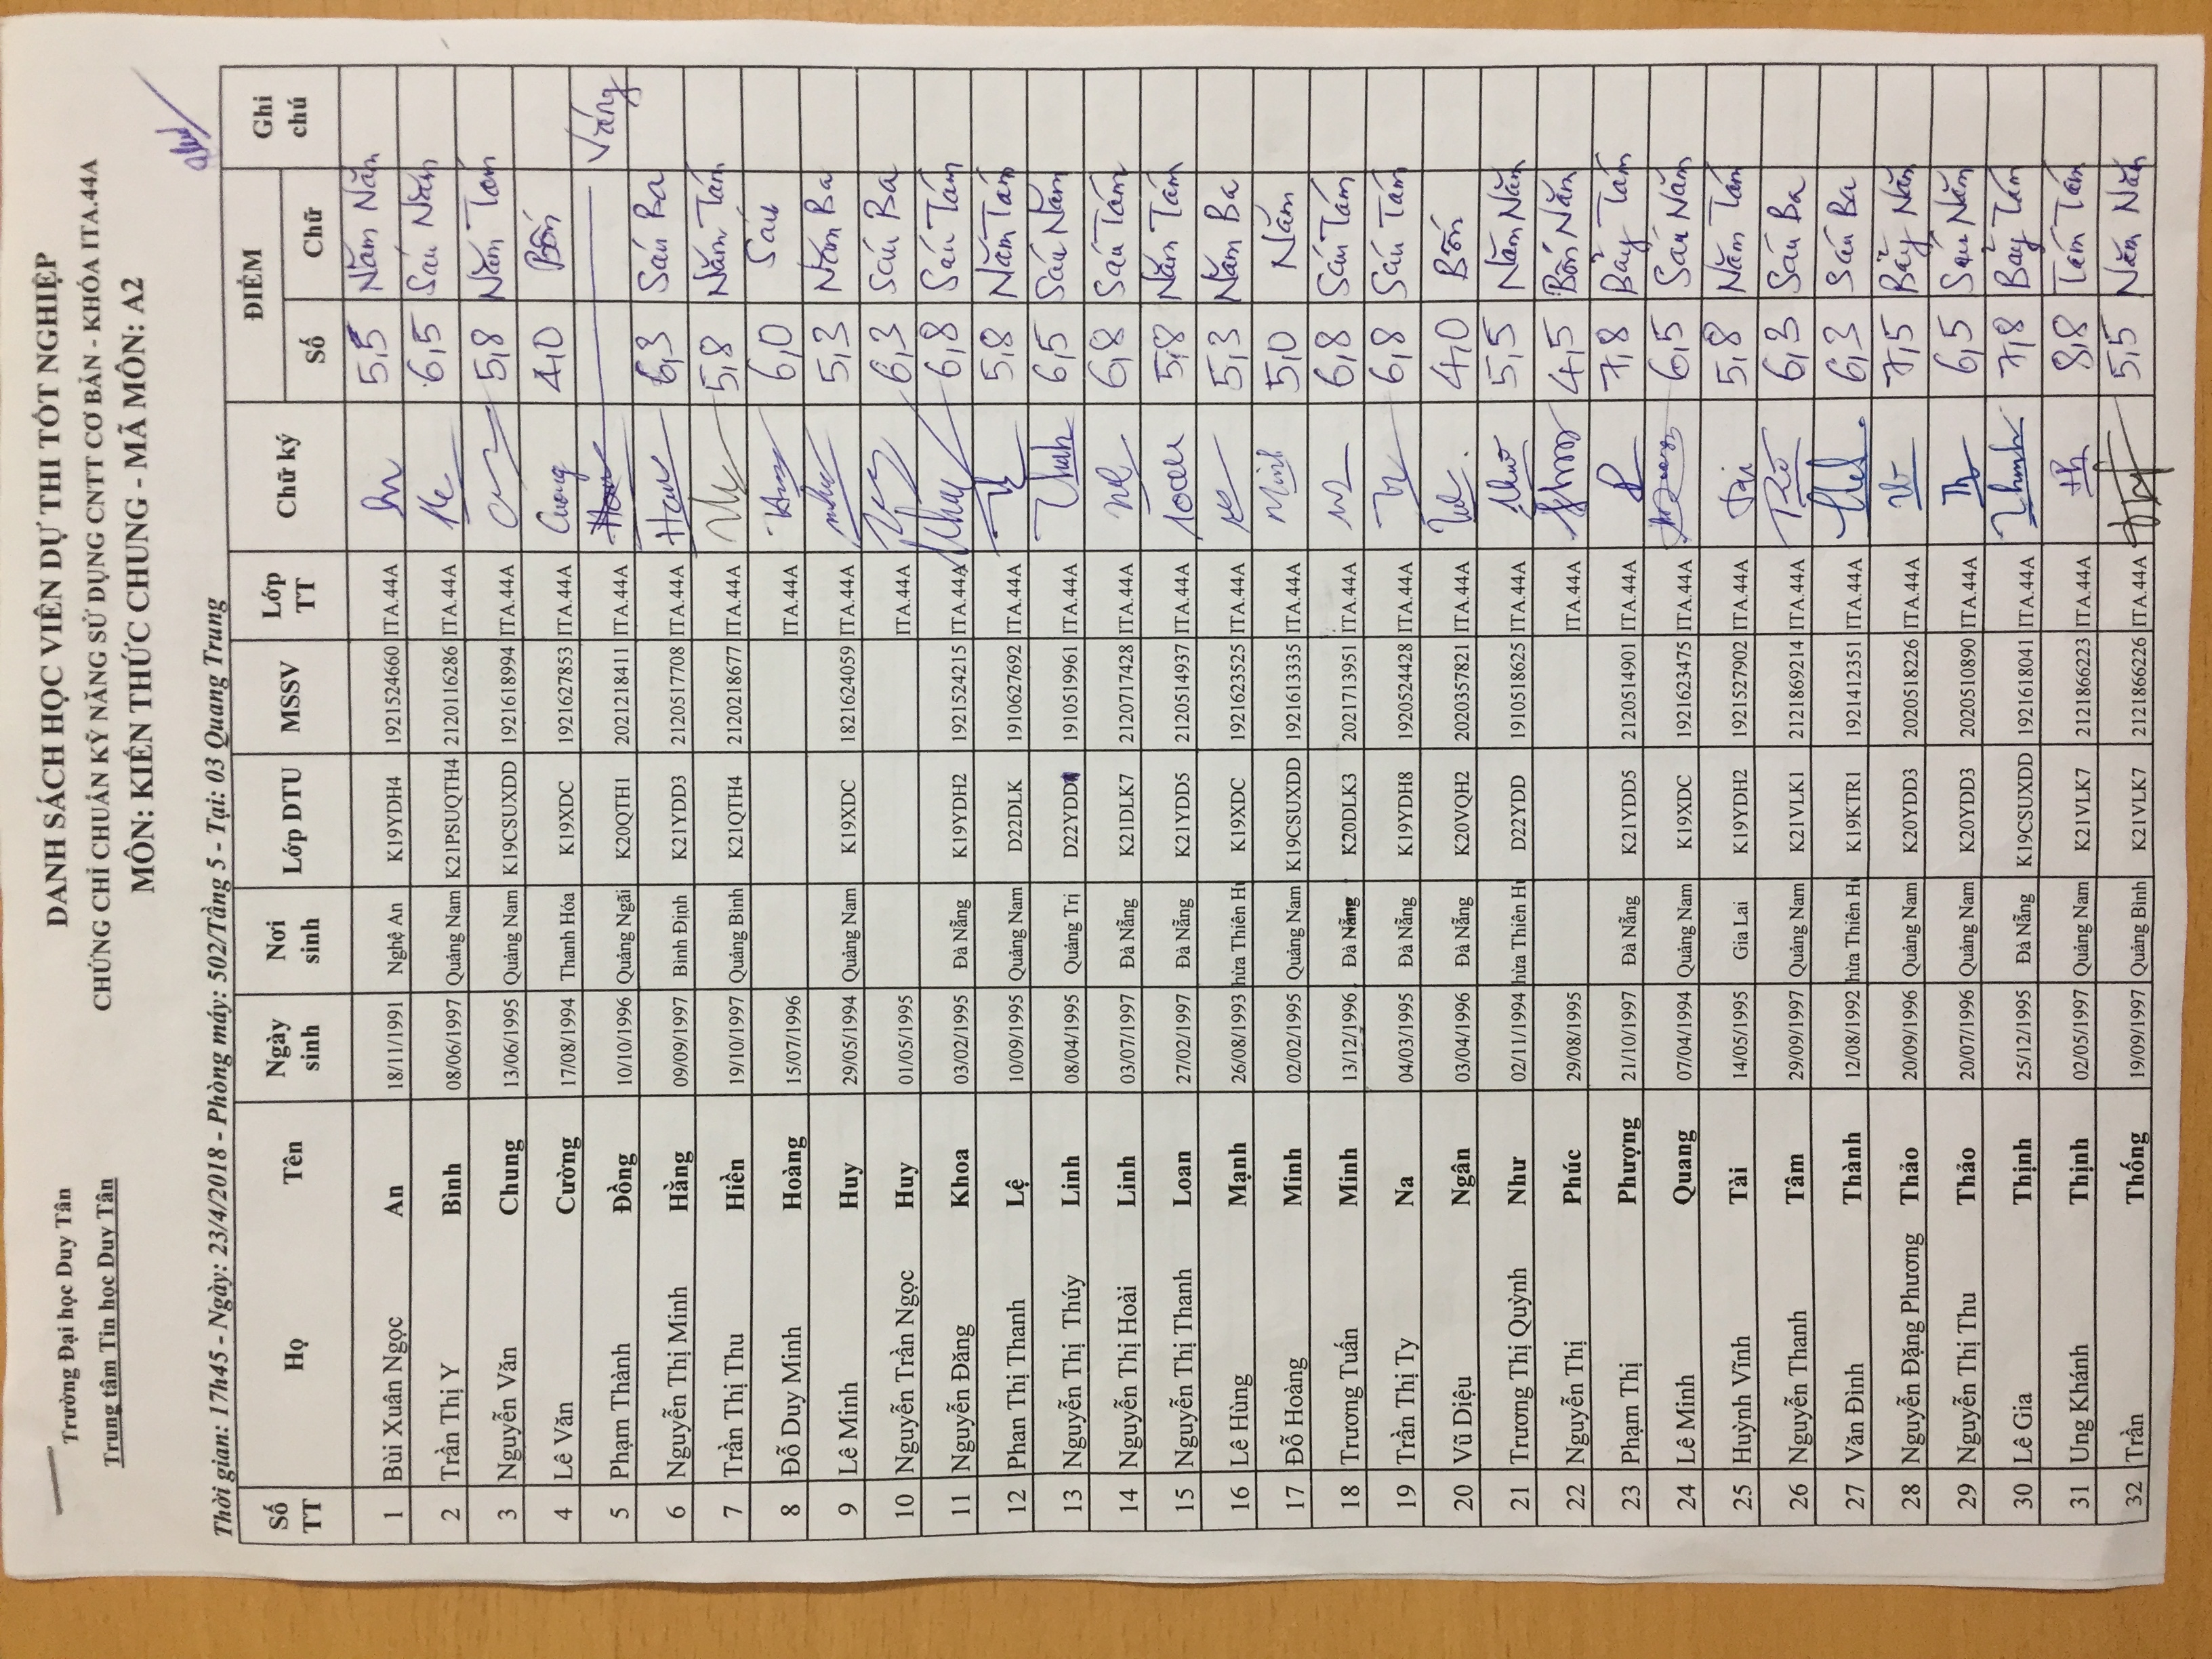 Trường Đại học Duy Tân
Trung tâm Tin học Duy Tân
DANH SÁCH HỌC VIÊN DỰ THI TỐT NGHIỆP
CHỨNG CHỈ CHUẨN KỸ NĂNG SỬ DỤNG CNTT CƠ BẢN - KHÓA ITA.44A
MÔN: KIẾN THỨC CHUNG - MÃ MÔN: A2
Thời gian: 17h45 - Ngày: 23/4/2018 - Phòng máy: 502/Tầng 5 - Tại: 03 Quang Trung
Số TT Họ Tên Ngày sinh Nơi sinh Lớp DTU MSSV Lớp TT Chữ ký ĐIỂM Số Chữ Ghi chú
1 Bùi Xuân Ngọc An 18/11/1991 Nghệ An K19YDH4 1921524660 ITA.44A 5,5 Năm Năm
2 Trần Thị Y Bình 08/06/1997 Quảng Nam K21PSUQTH4 2120116286 ITA.44A 6,5 Sáu Năm
3 Nguyễn Văn Chung 13/06/1995 Quảng Nam K19CSUXDD 1921618994 ITA.44A 5,8 Năm Tám
4 Lê Văn Cường 17/08/1994 Thanh Hóa K19XDC 1921627853 ITA.44A Cuong 4,0 Bốn
5 Phạm Thành Đồng 10/10/1996 Quảng Ngãi K20QTH1 2021218411 ITA.44A Vắng
6 Nguyễn Thị Minh Hằng 09/09/1997 Bình Định K21YDD3 2120517708 ITA.44A 6,3 Sáu Ba
7 Trần Thị Thu Hiền 19/10/1997 Quảng Bình K21QTH4 2120218677 ITA.44A 5,8 Năm Tám
8 Đỗ Duy Minh Hoàng 15/07/1996 ITA.44A 6,0 Sáu
9 Lê Minh Huy 29/05/1994 Quảng Nam K19XDC 1821624059 ITA.44A 5,3 Năm Ba
10 Nguyễn Trần Ngọc Huy 01/05/1995 ITA.44A 6,3 Sáu Ba
11 Nguyễn Đăng Khoa 03/02/1995 Đà Nẵng K19YDH2 1921524215 ITA.44A 6,8 Sáu Tám
12 Phan Thị Thanh Lệ 10/09/1995 Quảng Nam D22DLK 1910627692 ITA.44A 5,8 Năm Tám
13 Nguyễn Thị Thúy Linh 08/04/1995 Quảng Trị D22YDD 1910519961 ITA.44A 6,5 Sáu Năm
14 Nguyễn Thị Hoài Linh 03/07/1997 Đà Nẵng K21DLK7 2120717428 ITA.44A 6,8 Sáu Tám
15 Nguyễn Thị Thanh Loan 27/02/1997 Đà Nẵng K21YDD5 2120514937 ITA.44A 5,8 Năm Tám
16 Lê Hùng Mạnh 26/08/1993 hừa Thiên H K19XDC 1921623525 ITA.44A 5,3 Năm Ba
17 Đỗ Hoàng Minh 02/02/1995 Quảng Nam K19CSUXDD 1921613335 ITA.44A Minh 5,0 Năm
18 Trương Tuấn Minh 13/12/1996 Đà Nẵng K20DLK3 2021713951 ITA.44A 6,8 Sáu Tám
19 Trần Thị Ty Na 04/03/1995 Đà Nẵng K19YDH8 1920524428 ITA.44A 6,8 Sáu Tám
20 Vũ Diệu Ngân 03/04/1996 Đà Nẵng K20VQH2 2020357821 ITA.44A 4,0 Bốn
21 Trương Thị Quỳnh Như 02/11/1994 hừa Thiên H D22YDD 1910518625 ITA.44A 5,5 Năm Năm
22 Nguyễn Thị Phúc 29/08/1995 ITA.44A 4,5 Bốn Năm
23 Phạm Thị Phượng 21/10/1997 Đà Nẵng K21YDD5 2120514901 ITA.44A 7,8 Bảy Tám
24 Lê Minh Quang 07/04/1994 Quảng Nam K19XDC 1921623475 ITA.44A 6,5 Sáu Năm
25 Huỳnh Vĩnh Tài 14/05/1995 Gia Lai K19YDH2 1921527902 ITA.44A Tài 5,8 Năm Tám
26 Nguyễn Thanh Tâm 29/09/1997 Quảng Nam K21VLK1 2121869214 ITA.44A 6,3 Sáu Ba
27 Văn Đình Thành 12/08/1992 hừa Thiên H K19KTR1 1921412351 ITA.44A 6,3 Sáu Ba
28 Nguyễn Đặng Phương Thảo 20/09/1996 Quảng Nam K20YDD3 2020518226 ITA.44A 7,5 Bảy Năm
29 Nguyễn Thị Thu Thảo 20/07/1996 Quảng Nam K20YDD3 2020510890 ITA.44A 6,5 Sáu Năm
30 Lê Gia Thịnh 25/12/1995 Đà Nẵng K19CSUXDD 1921618041 ITA.44A Thịnh 7,8 Bảy Tám
31 Ung Khánh Thịnh 02/05/1997 Quảng Nam K21VLK7 2121866223 ITA.44A 8,8 Tám Tám
32 Trần Thống 19/09/1997 Quảng Bình K21VLK7 2121866226 ITA.44A 5,5 Năm Năm